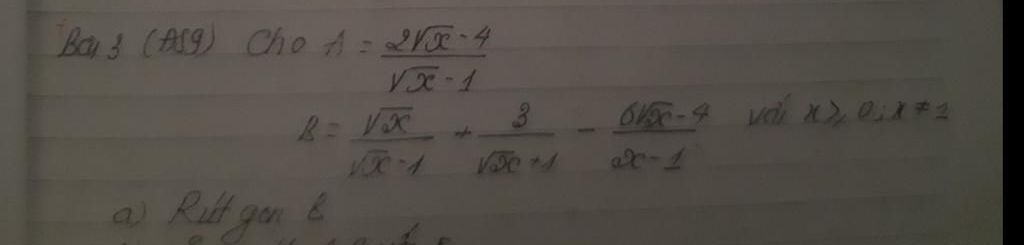 Bài 3 (ĐS9) Cho A = (2√x - 4)/(√x - 1)
B = √x/(√x - 1) + 3/(√x + 1) - (6√x - 4)/(x - 1) với x ≥ 0; x ≠ 1
a) Rút gọn B